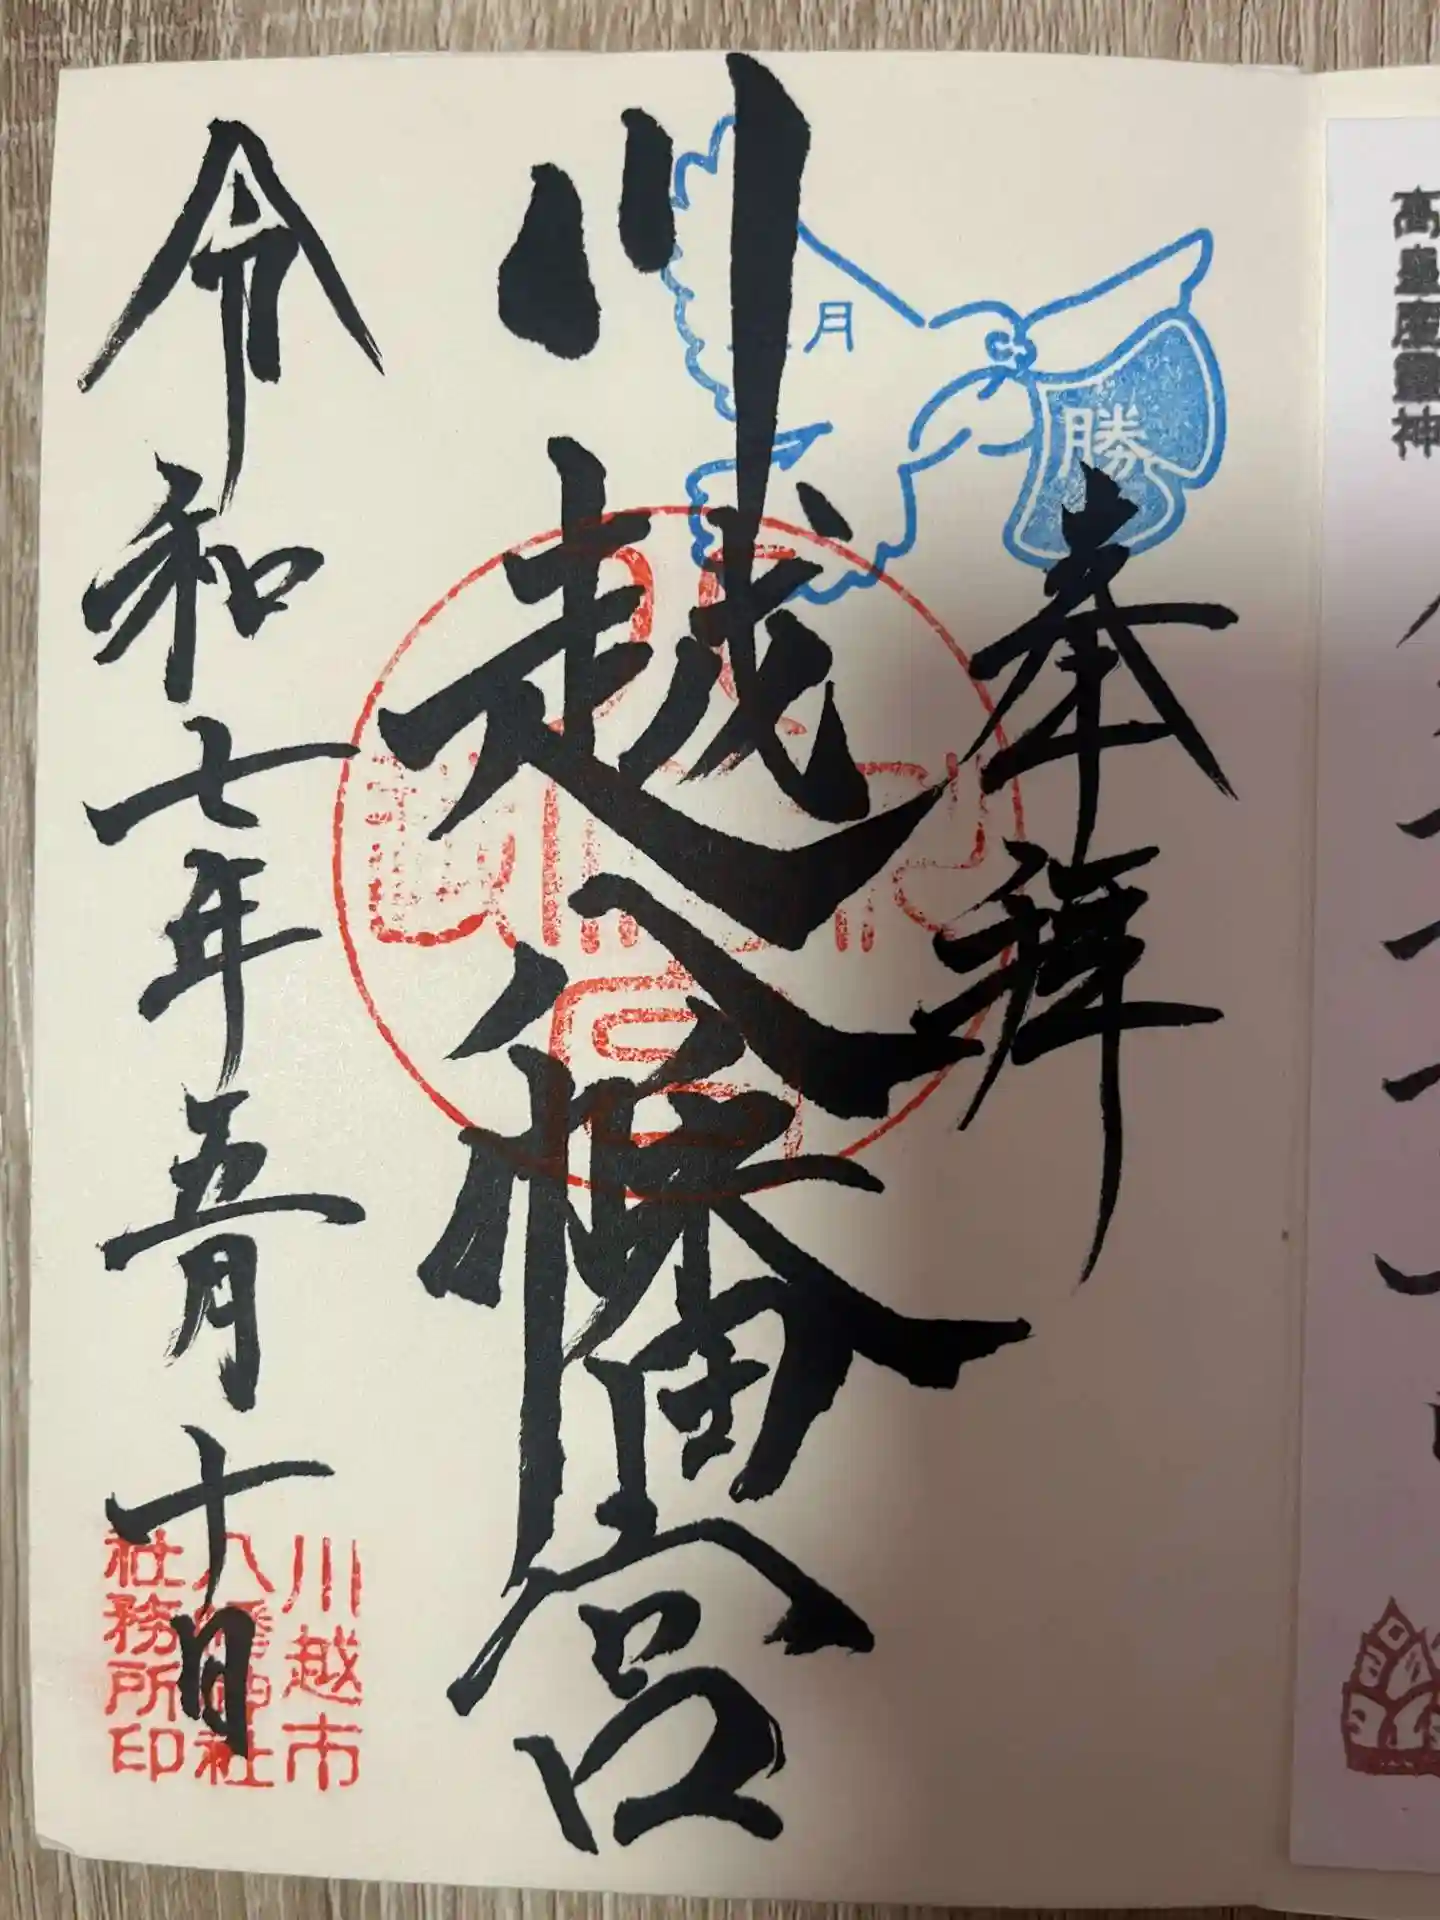 奉拝
勝
月
川越八幡宮
令和七年五月十日
川越市
八幡神社
社務所印